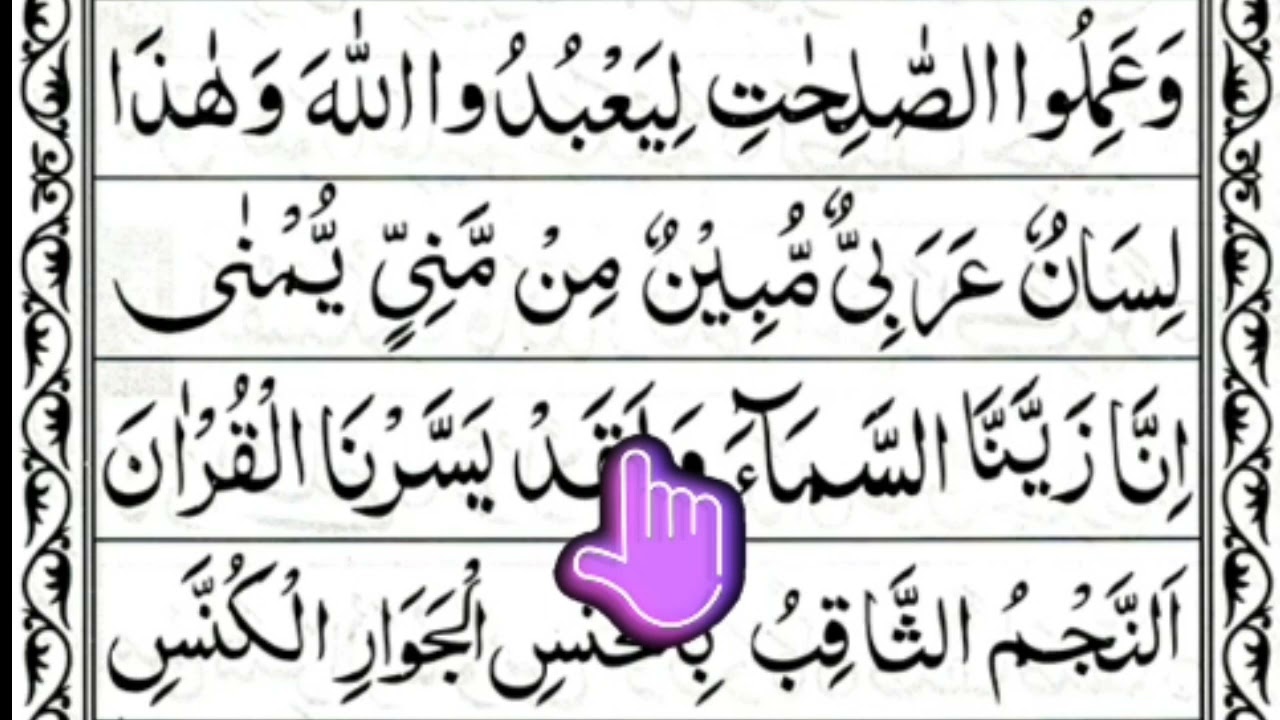 وَعَمِلُوا الصّٰلِحٰتِ لِيَعْبُدُوا اللّٰهَ وَهٰذَا
لِسَانٌ عَرَبِيٌّ مُّبِيْنٌ مِنْ مَّنِيٍّ يُّمْنٰى
اِنَّا زَيَّنَّا السَّمَآءَ وَلَقَدْ يَسَّرْنَا الْقُرْاٰنَ
اَلنَّجْمُ الثَّاقِبُ الْجَوَارِ الْكُنَّسِ